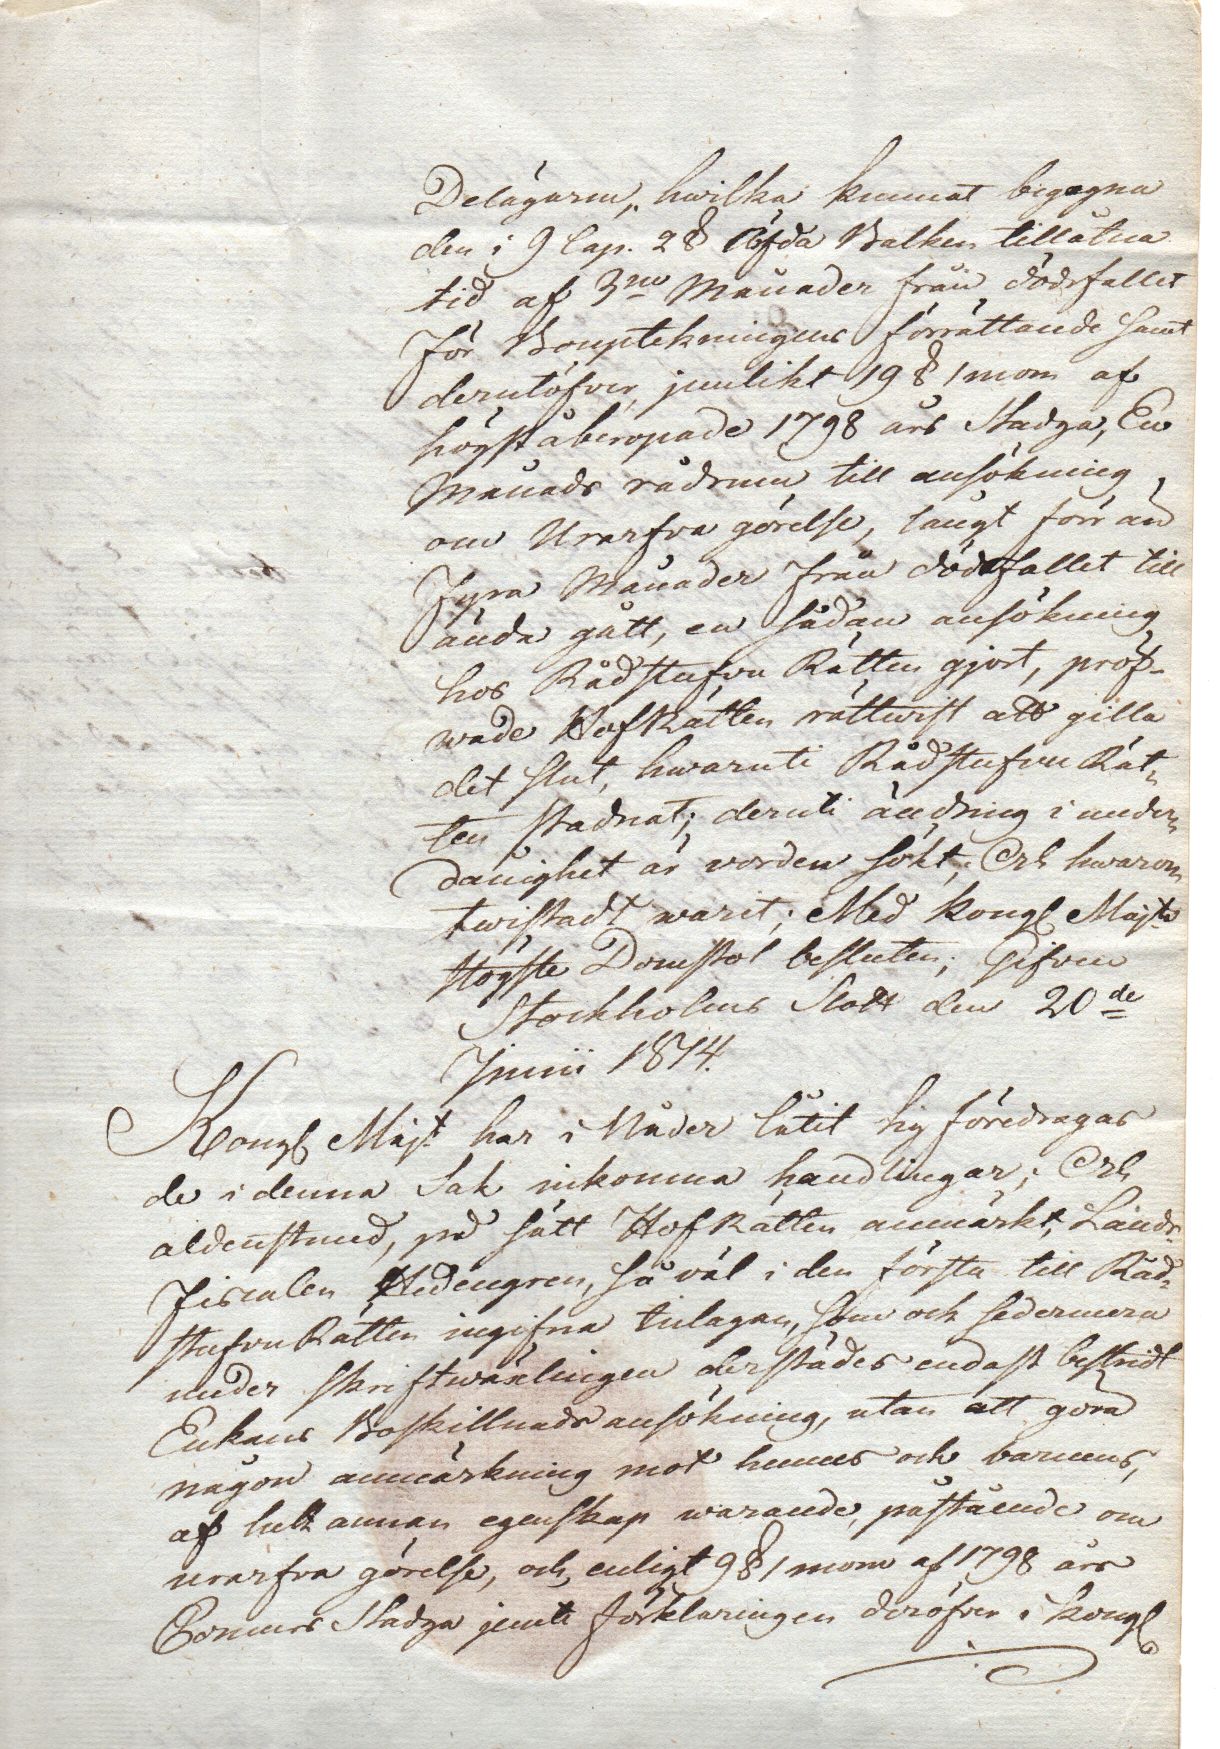 Delägarne, hwilka kunnat begagna
den i 9 Cap. 2 § Ärfda Balken tillåtna
tid af 3ne Månader från dödsfallet
för Bouptekningens förrättande samt
derutöfver, jemlikt 19 § 1 mom af
högståberopade 1798 års Stadga, En
Månads rådrum till ansökning
om Urarfva görelse, långt förr än
Fyra Månader från dödsfallet till
ända gått, en sådan ansökning
hos Rådstufvu Rätten gjort, pröf-
wade HofRätten rättwist att gilla
det slut, hwaruti Rådstufvu Rät-
ten stadnat; deruti ändring i under-
dånighet är vorden sökt; Och hwarom
twistadt warit; Med Kongl Majts
Högste Domstol besluten; Gifven
Stockholms Slott den 20de
Junii 1814.
Kongl Majt har i Nåder låtit sig föredragas
de i denna Sak inkomna handlingar; Och
aldenstund, på sätt HofRätten anmärkt, Lands-
Fiscalen Hedengren, så väl i den första till Råd-
stufvuRätten ingifna inlagan, som och sedermera
under skriftwäxlingen derstädes endast bestridt
Enkans Boskillnads ansökning, utan att göra
någon anmärkning mot hennes och barnens,
af helt annan egenskap warande, påstående om
urarfva görelse, och enligt 9 § 1 mom af 1798 års
Concurs Stadga jemte förklaringen deröfver i Kongl